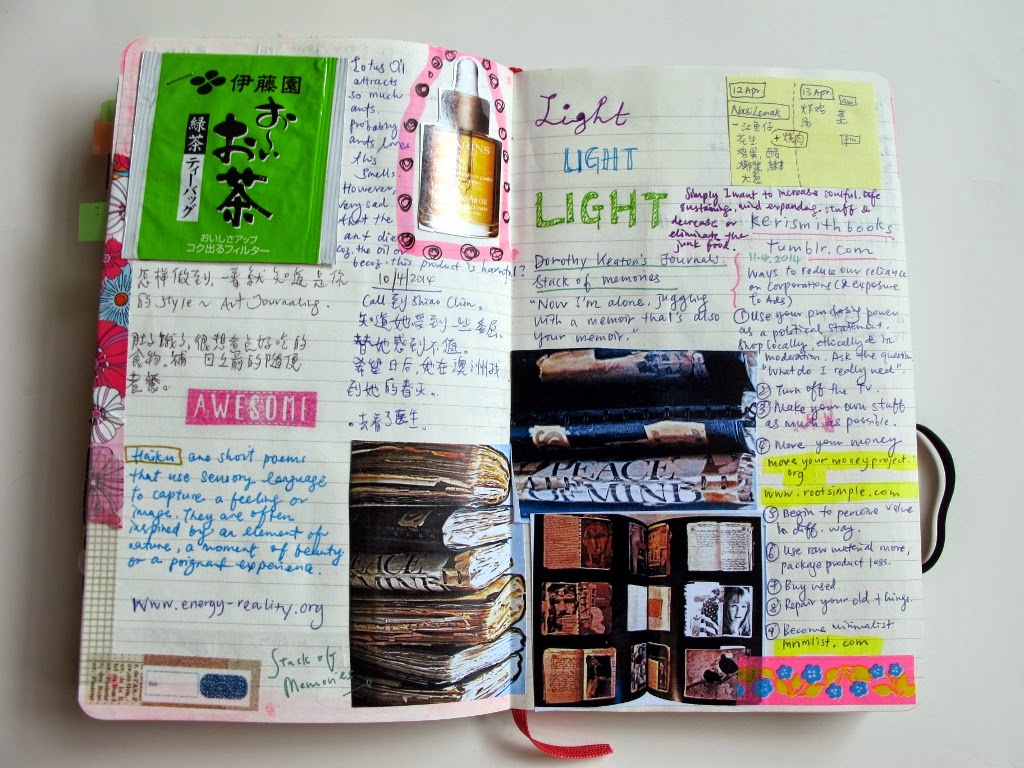 伊藤園
お〜いお茶
緑茶
ティーバッグ
おいしさアップ
コク出るフィルター
Lotus Oil
attracts
so much
ants.
probably
ants love
this
smells
However,
very sad
that the
ant die
coz the oil or
becoz this product is harmful?
CLARINS
怎样做到,一看就知道是你
的 style ~ Art Journaling.
肚子饿了,很想看点好吃的
食物。
AWESOME
10/4/2014
Call 到 Shiao Chien.
知道她受到一些委屈。
替她感到不值。
希望日后,她在澳洲找
到她的春天。
去看了医生。
Haiku are short poems
that use sensory language
to capture a feeling or
image. They are often
inspired by an element of
nature, a moment of beauty
or a poignant experience.
www.energy-reality.org
Stack of
Memories
PEACE
MIND
Light
LIGHT
LIGHT
12 Apr
Nasi Lemak
江鱼仔
花生 + 烧肉
鸡蛋,
大葱
13 Apr
炸鸡
am
菜
pm
Simply I want to increase soulful, life
sustaining, mind expanding stuff &
decrease or
eliminate the
junk food.
kerismithbooks
tumblr.com
Dorothy Keaton's Journals
Stack of memories
"Now I'm alone, juggling
with a memoir that's also
your memoir."
PEACE
OF MIND
11.4.2014
Ways to reduce our reliance
on Corporations (& exposure
to Ads)
① Use your purchase power
as a political statement.
Shop locally, ethically & in
moderation. Ask the question
"What do I really need".
② Turn off the TV.
③ Make your own stuff
as much as possible.
④ Move your money
moveyourmoneyproject.
org
www.rootsimple.com
⑤ Begin to perceive value
in diff. way.
⑥ Use raw material more,
package product less.
⑦ Buy used
⑧ Repair your old things.
⑨ Become minimalist
mnmlist.com